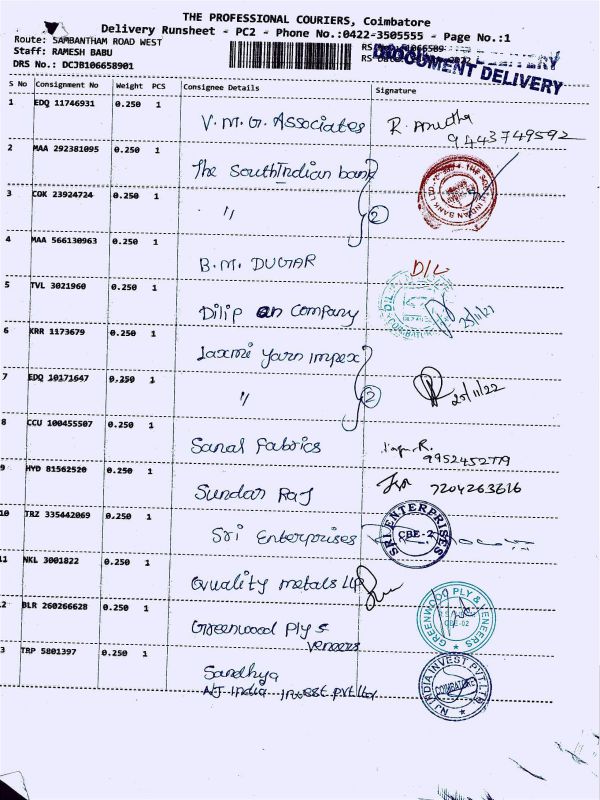 THE PROFESSIONAL COURIERS, Coimbatore
Delivery Runsheet - PC2 - Phone No.:0422-3505555 - Page No.:1
Route: SAMBANTHAM ROAD WEST
Staff: RAMESH BABU
DRS No.: DCJB106658901
DOCUMENT DELIVERY
S No Consignment No Weight PCS Consignee Details Signature
1 EDQ 11746931 0.250 1 V.M.G. Associates R. Anutha
9443749592
2 MAA 292381095 0.250 1 The SouthIndian bank
3 COK 23924724 0.250 1 " 2
4 MAA 566130963 0.250 1 B.M. DUGAR D/L
5 TVL 3021960 0.250 1 Dilip an Company 25/11/22
6 KRR 1173679 0.250 1 Laxmi Yarn impex
7 EDQ 10171647 0.250 1 " 2 25/11/22
8 CCU 100455507 0.250 1 Sanal Fabrics
9 HYD 81562520 0.250 1 Sundar Raj 7204263616
10 TRZ 335442069 0.250 1 Sri Enterprises SRI ENTERPRISES CBE-2
11 NKL 3001822 0.250 1 Quality metals LLP
12 BLR 260266628 0.250 1 Greenwood Ply &
Veneers
GREENWOOD PLY & VENEERS CBE-02
13 TRP 5801397 0.250 1 Sandhya
NJ India Invest Pvt Ltd
NJ INDIA INVEST PVT.LTD COIMBATORE